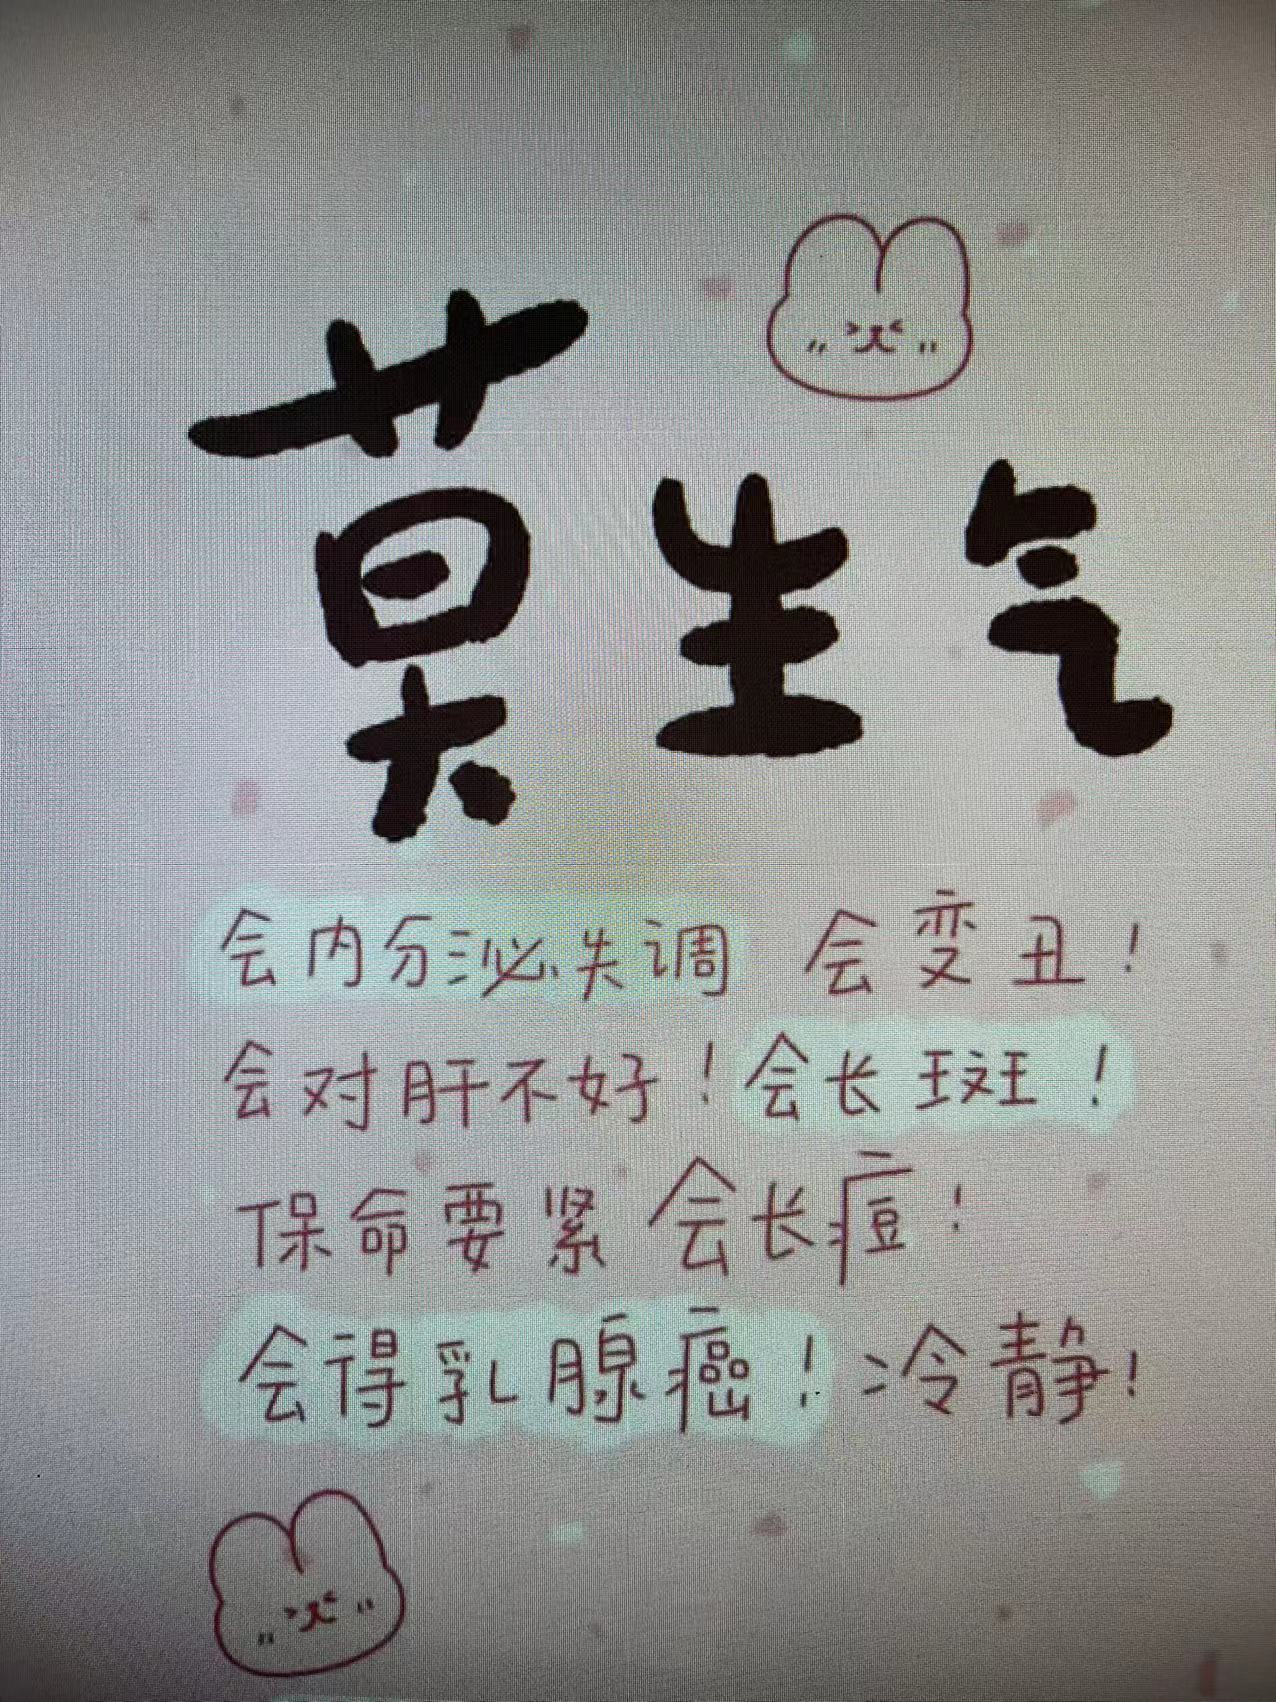 莫生气
会内分泌失调 会变丑！
会对肝不好！会长斑！
保命要紧 会长痘！
会得乳腺癌！冷静！